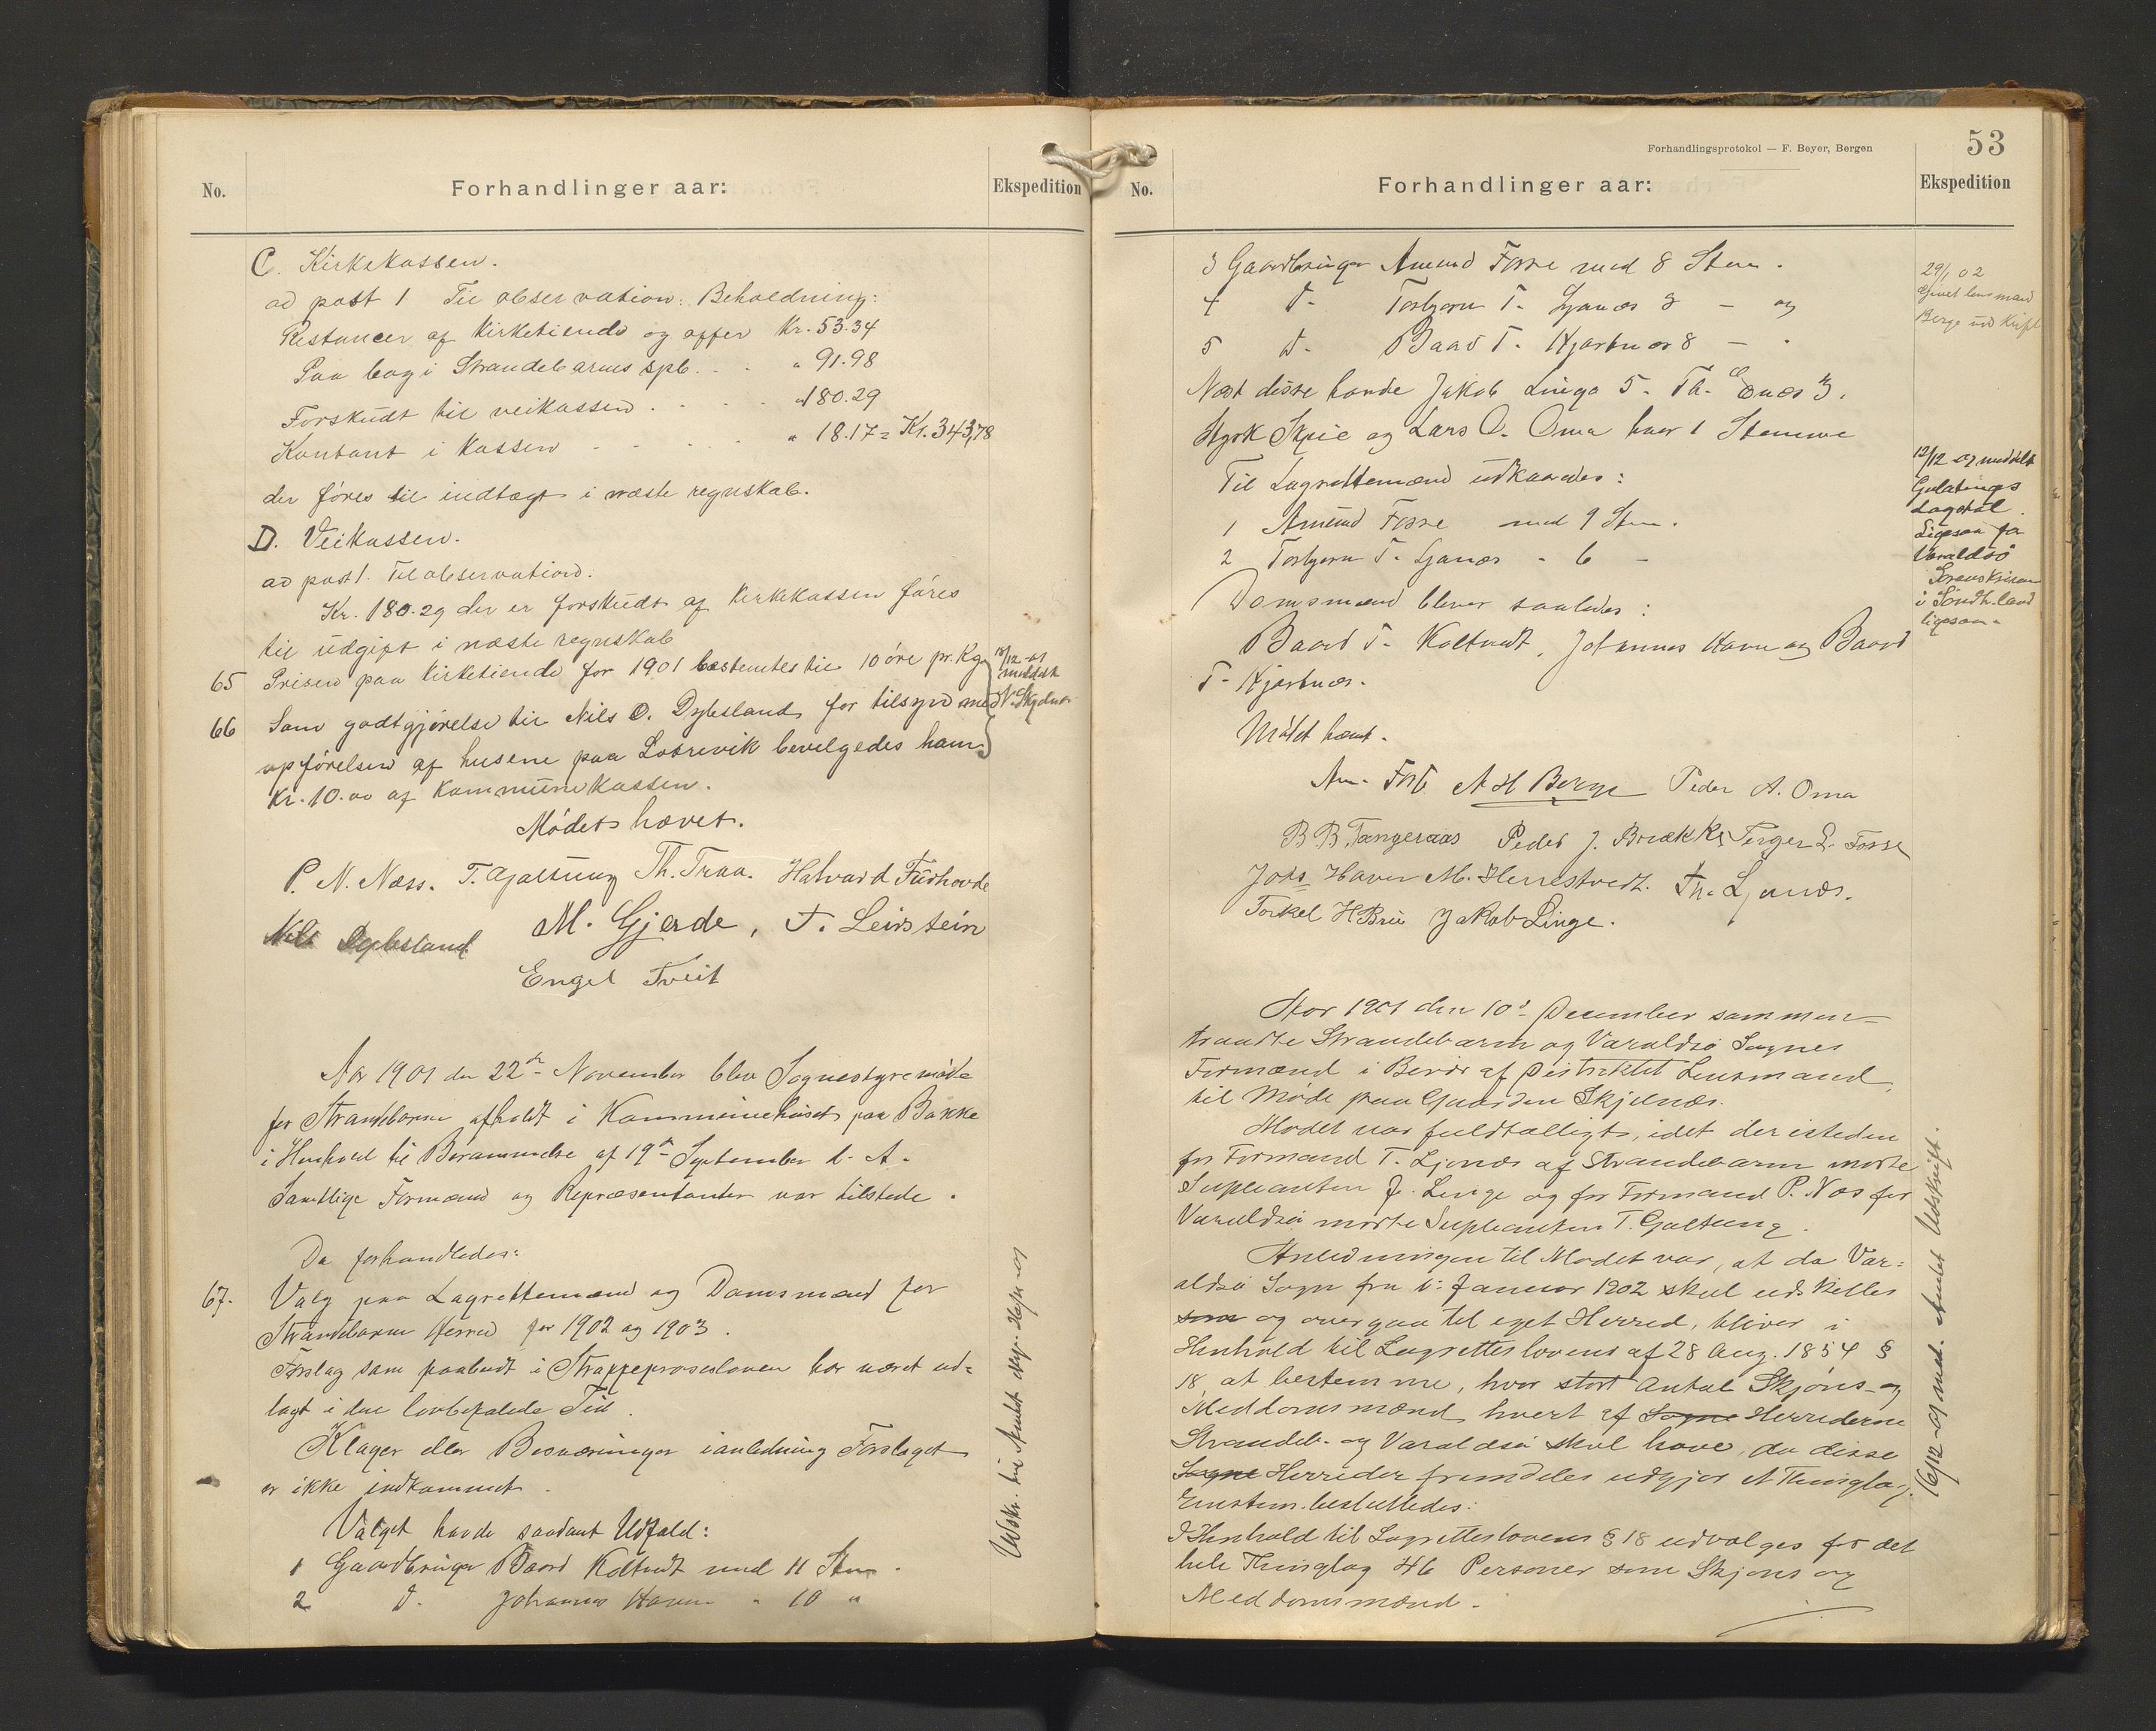 No.
Forhandlinger aar:
Ekspedition
C. Kirkekassen.
ad post 1 Til observation: Beholdning:
Restancer af kirketiende og offer Kr. 53.34
Paa bog i Strandebarms spb. . . " 91.98
Forskudt til veikassen . . . . "180.29
Kontant i kassen . . . . " 18.17 = Kr. 343,78
der føres til indtægt i næste regnskab.
D. Veikassen.
ad post 1. Til observation.
Kr. 180.29 der er forskudt af kirkekassen føres
til udgift i næste regnskab
65 Prisen paa kirketiende for 1901 bestemtes til 10 øre pr. Kg.
12/12-01
meddelt
N. Skjelnes
66 Som godtgjørelse til Nils O. Dybsland for tilsyn med
opførelsen af husene paa Lothrevik bevilgedes ham
Kr. 10.00 af kommunekassen.
Mødet hævet.
P. N. Næss. T. Galtung Th. Traa. Halvard Furhovde
Nils Dybsland M. Gjerde, T. Leirstein
Engel Tveit
Aar 1901 den 22de November blev Sognestyremøde
for Strandebarm afholdt i Kommunehuset paa Bakke
i Henhold til Berammelse af 19de September d. A.
Samtlige Formænd og Repræsentanter var tilstede.
Da forhandledes:
67. Valg paa Lagrettemænd og Domsmænd for
Strandebarm Herred for 1902 og 1903.
Forslag som paabudt i Straffeprosesloven har været ud-
lagt i den lovbefalede Tid.
Klager eller Besværinger i anledning Forslaget
er ikke indkommet.
Valget havde saadant Udfald:
1 Gaardbruger Baard Koltvedt med 11 Stem.
2 d. Johannes Haven " 10 "
Udskr. til Amtet
53
Forhandlingsprotokol — F. Beyer, Bergen
No.
Forhandlinger aar:
Ekspedition
3 Gaardbruger Amund Fosse med 8 Stem.
4 d- Torbjørn T. Ljones 8 - og
5 d- Baard T. Kjartnes 8 - .
29/1 02
Givet lensmand
Berge udskrift
Næst disse havde Jakob Linga 5. Th. Ænes 3.
Styrk Skeie og Lars O. Oma hver 1 Stemme
Til Lagrettemænd udkaaredes:
1 Amund Fosse med 9 Stem.
2 Torbjørn T. Ljones " 6 -
12/12 01 meddelt
Gulatings
Lagstol.
Ligesaa for
Varaldsø
Sorenskriveren
i Söndh.land
ligesaa
Domsmænd bliver saaledes:
Baard T. Koltvedt, Johannes Haven og Baard
T. Kjartnes.
Mødet hævet.
Am. Fosse A H Berge Peder A. Oma
B B. Tangeraas Peder J. Brække Torger L. Fosse
Johs Haven M. Herrestvedt. Th. Ljones.
Torkel H Bru Jakob Linge.
Aar 1901 den 10de December sammen-
traadte Strandebarm og Varaldsø Sognes
Formænd i Berør af Distriktet Lensmand,
til Møde paa Gaarden Skjelnæs.
Mødet var fuldtalligt, idet der isteden
for Formand T. Ljones af Strandebarm mødte
Supleanten J. Linge og for Formand P. Næs for
Varaldsø mødte Supleanten T. Galtung.
Anledningen til Mødet var, at da Var-
aldsø Sogn fra 1. Januar 1902 skal udskilles
som og overgaa til eget Herred, bliver i
Henhold til Lagretteslovens af 28 Aug. 1854 §
18, at bestemme, hvor stort Antal Skjøns- og
Meddomsmænd hvert af Sogne Herrederne
Strandeb. og Varaldsø skal have, da disse
Sogne Herreder fremdeles udgjør et Thinglag.
Enstem. besluttedes:
I Henhold til Lagretteslovens § 18 udvælges for det
hele Thinglag 46 Personer som Skjøns og
Meddomsmænd.
16/12-01 med. Amtet Udskrift.